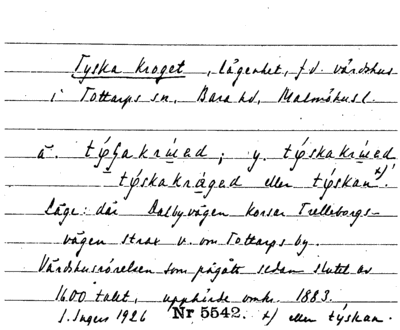 Tyska kroget, lägenhet, f.d. värdshus
i Tottarps sn, Bara hd, Malmöhus l.
ä. týskakrúəd; y. týskakrúəd
týskakrǻgəd eller týskan x)
Läge: där Dalbyvägen korsar Trelleborgs-
vägen strax v. om Tottarps by.
Värdshusrörelsen som pågått sedan slutet av
1600 talet, upphörde omkr. 1883.
I. Ingers 1926 Nr 5542. x) eller týskən.